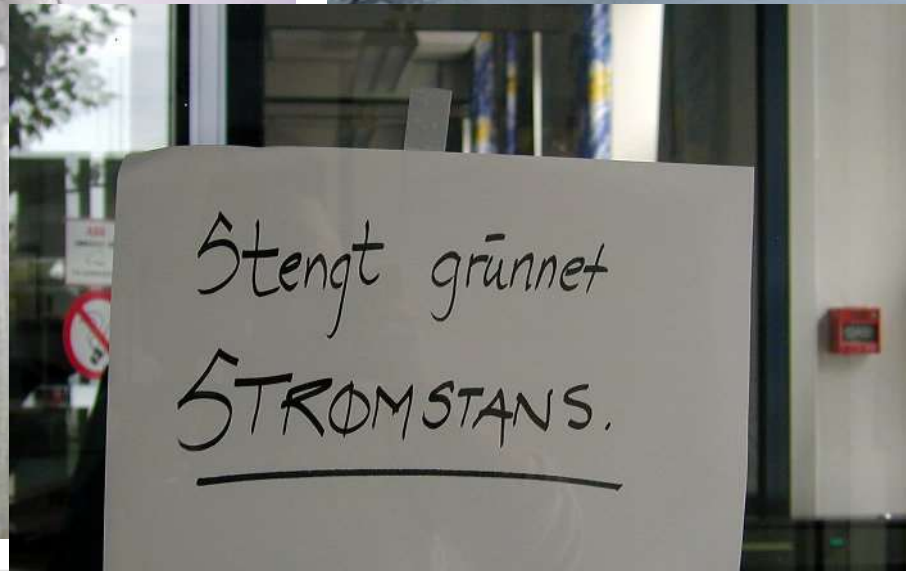 Stengt grūnnet
STRØMSTANS.